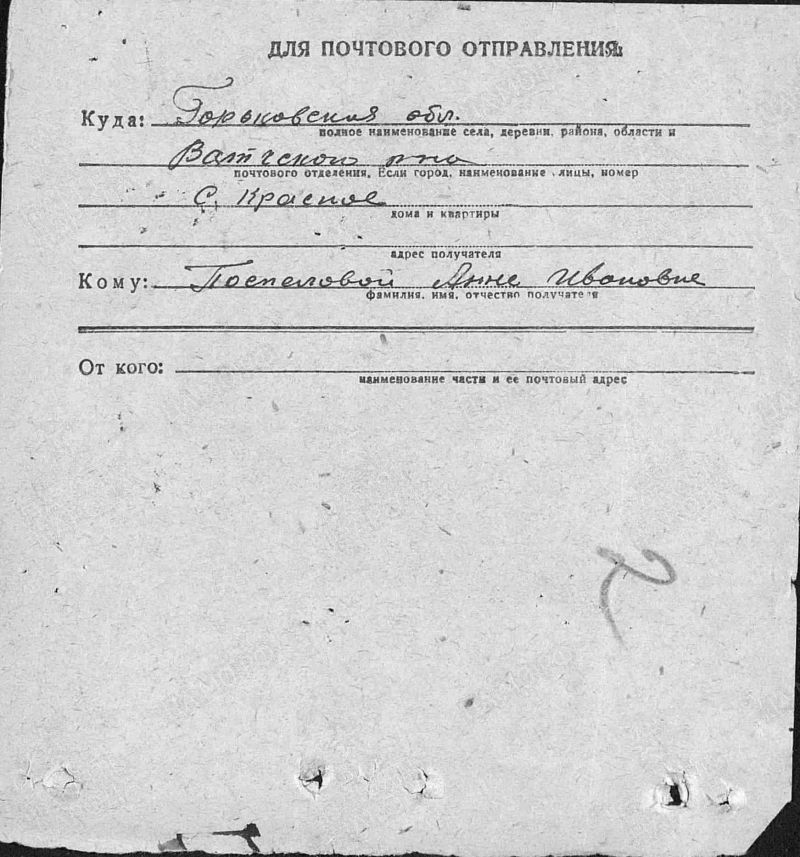 ДЛЯ ПОЧТОВОГО ОТПРАВЛЕНИЯ
Куда: Горьковская обл.
полное наименование села, деревни, района, области и
Ватчского рна
почтового отделения, Если город, наименование лицы, номер
С. Красное
дома и квартиры
адрес получателя
Кому: Поспеловой Анне Ивановне
фамилия, имя, отчество получателя
От кого:
наименование части и ее почтовый адрес